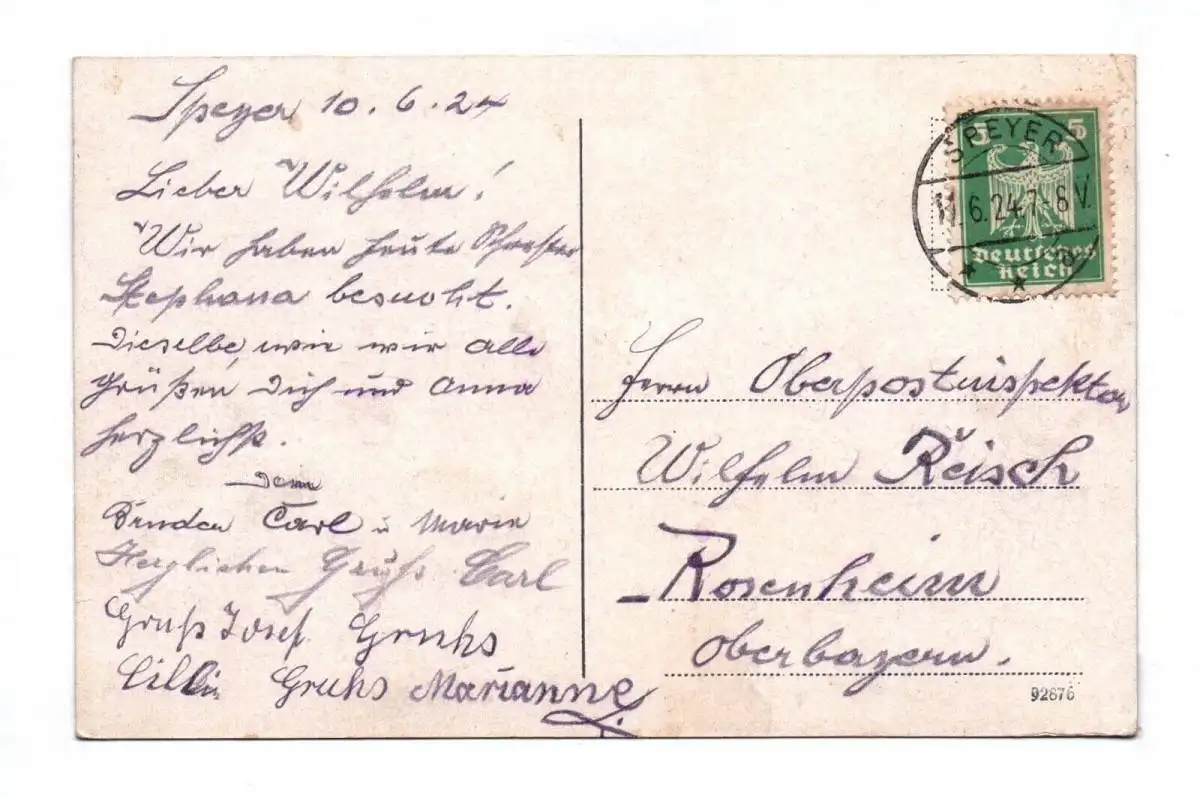 Speyer 10.6.24
Lieber Wilhelm!
Wir haben heute Schwester
Stephana besucht.
Dieselbe, wie wir alle
grüßen Dich und Anna
herzlichst.
Dein
Bruder Carl u Marie
Herzlichen Gruß Carl
Gruß Josef. Gruhs
Cillin Gruhs Marianne
5 5
Deutsches
Reich
SPEYER
6.24.7-8V.
Herrn Oberpostinspektor
Wilhelm Reisch
Rosenheim
Oberbayern.
92876